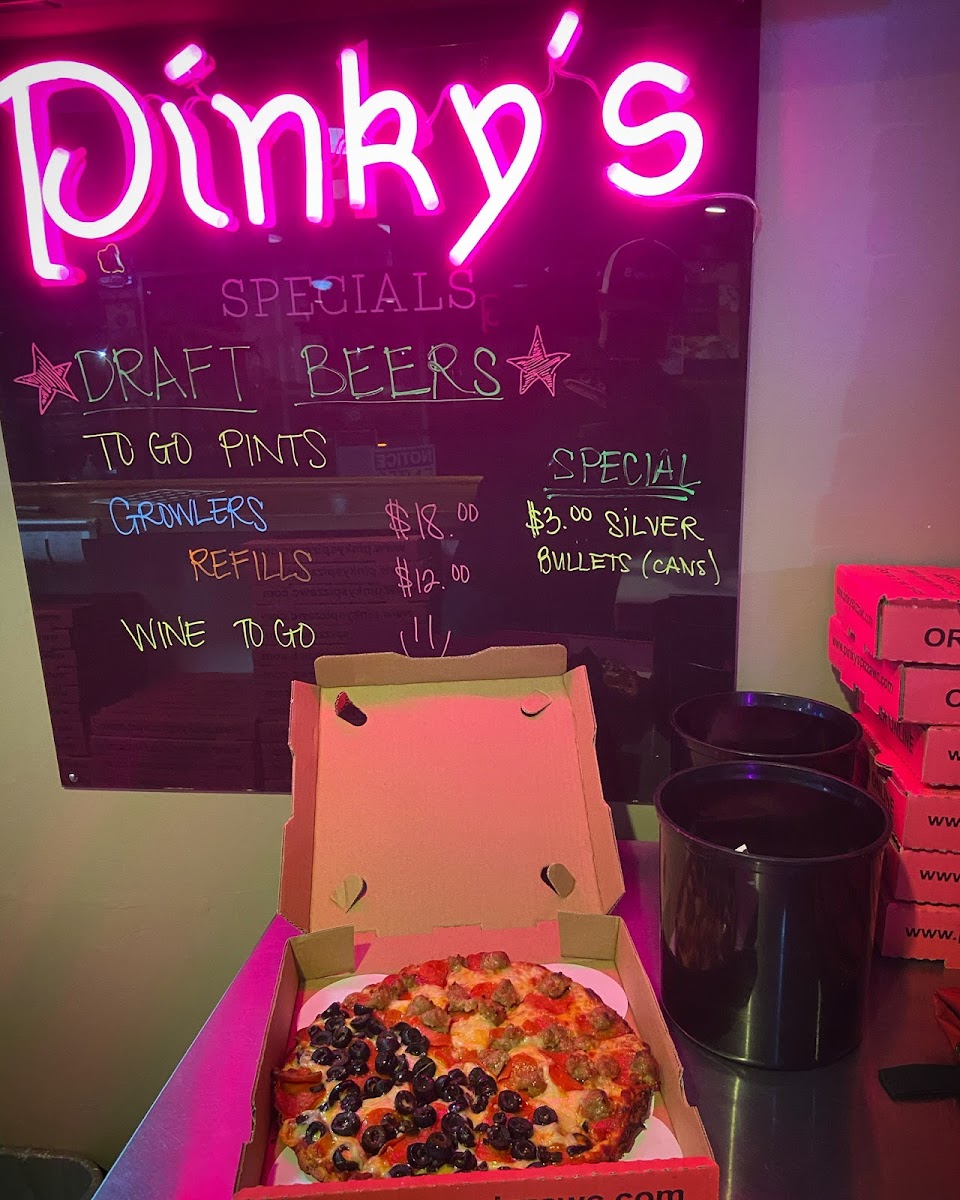 Pinky's
SPECIALS
DRAFT BEERS
TO GO PINTS
GROWLERS $18.00
REFILLS $12.00
WINE TO GO
SPECIAL
$3.00 SILVER
BULLETS (CANS)
NOTICE
OR
www.pinkyspizzawc.com
O
w
ww
www
www.
zawc.com